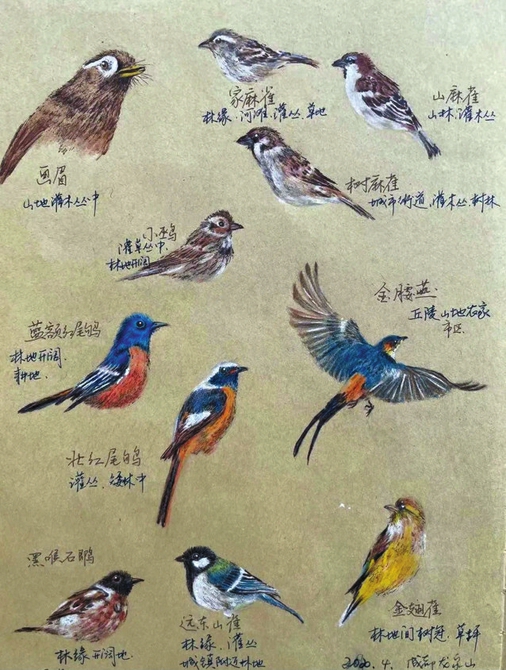 家麻雀
林缘、河滩、灌丛、草地
山麻雀
山林、灌木丛
画眉
山地灌木丛中
树麻雀
城市街道、灌木丛、树林
小鹀
灌草丛中、
林地开阔
金腰燕
丘陵山地农家
市区
蓝额红尾鸲
林地开阔
耕地
红尾鸲
灌丛、矮林中
黑喉石䳭
远东山雀
林缘、灌丛
城镇附近林地
金翅雀
林地间树冠、草坪
林缘开阔地
2020.4.
龙泉山